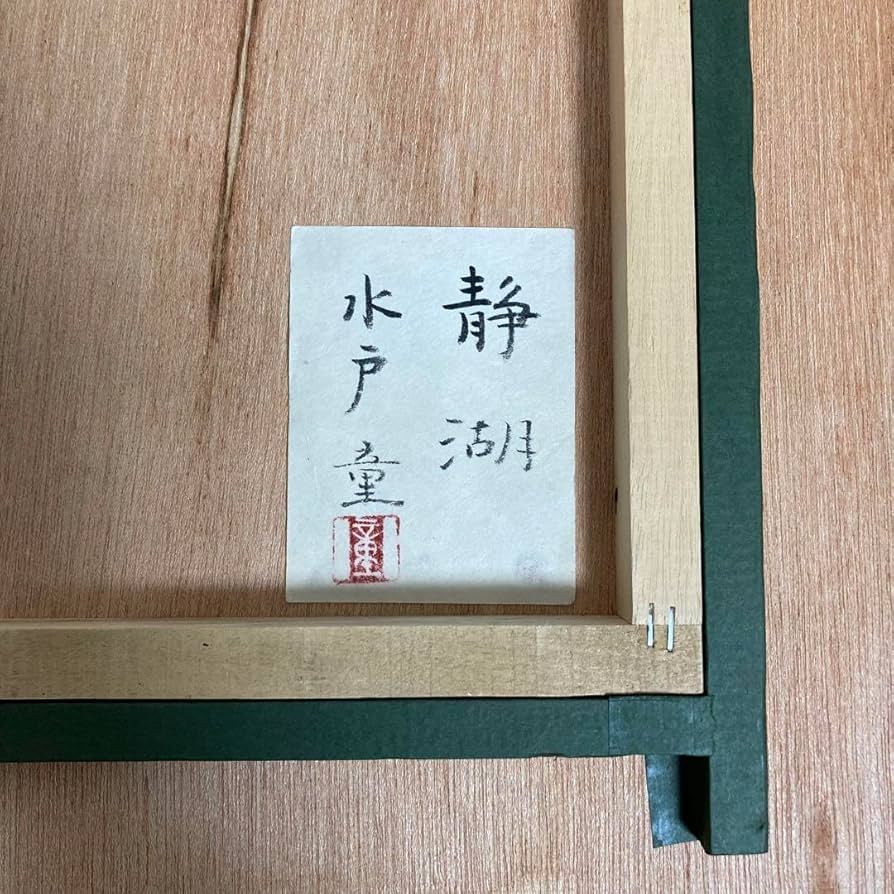 静湖
水戸童
童